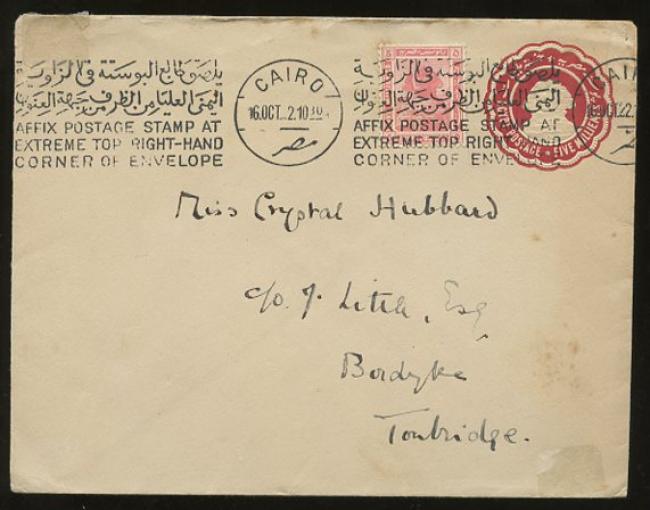 يلصق طابع البوستة في الزاوية
اليمنى العليا من الظرف من جهة العنوان
AFFIX POSTAGE STAMP AT
EXTREME TOP RIGHT-HAND
CORNER OF ENVELOPE
CAIRO
16.OCT.22.10
مصر
يلصق طابع البوستة في الزاوية
اليمنى العليا من الظرف من جهة العنوان
AFFIX POSTAGE STAMP AT
EXTREME TOP RIGHT-HAND
CORNER OF ENVELOPE
POSTAGE FIVE
CAI
16.OCT.22.
Miss Crystal Hubbard
c/o. J. Litch, Esq
Bordyke
Tonbridge.